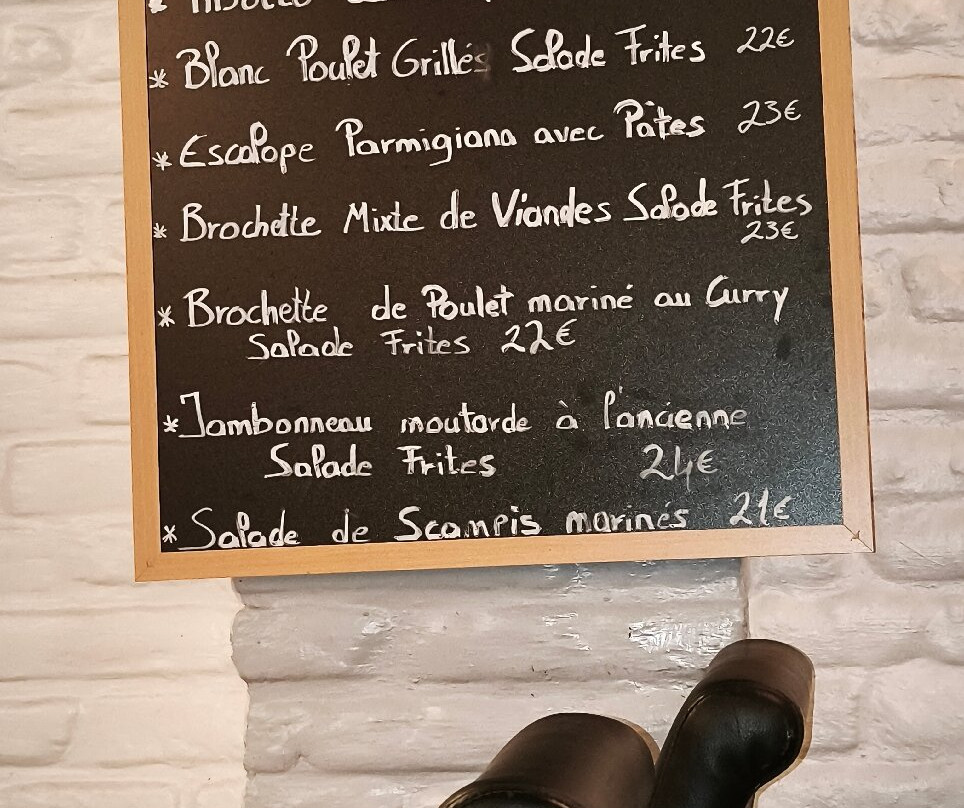 * Blanc Poulet Grillés Salade Frites 22€
* Escalope Parmigiana avec Pâtes 23€
* Brochette Mixte de Viandes Salade Frites
23€
* Brochette de Poulet mariné au Curry
Salade Frites 22€
* Jambonneau moutarde à l'ancienne
Salade Frites 24€
* Salade de Scampis marinés 21€